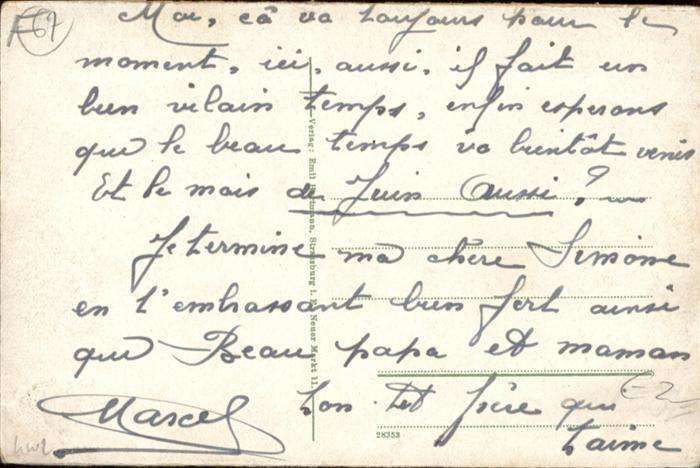 F67
Moi, çâ va toujours pour le
moment, ici, aussi, il fait un
bien vilain temps, enfin esperons
que le beau temps va bientôt venir
Et le mois de Juin Aussi?
Je termine ma chère Simone
en t'embrassant bien fort ainsi
que Beau papa et maman
ton tet frère qui
t'aime
Marcel
Verlag: Emil Hartmann, Strassburg i. E. Neuer Markt 11.
28353